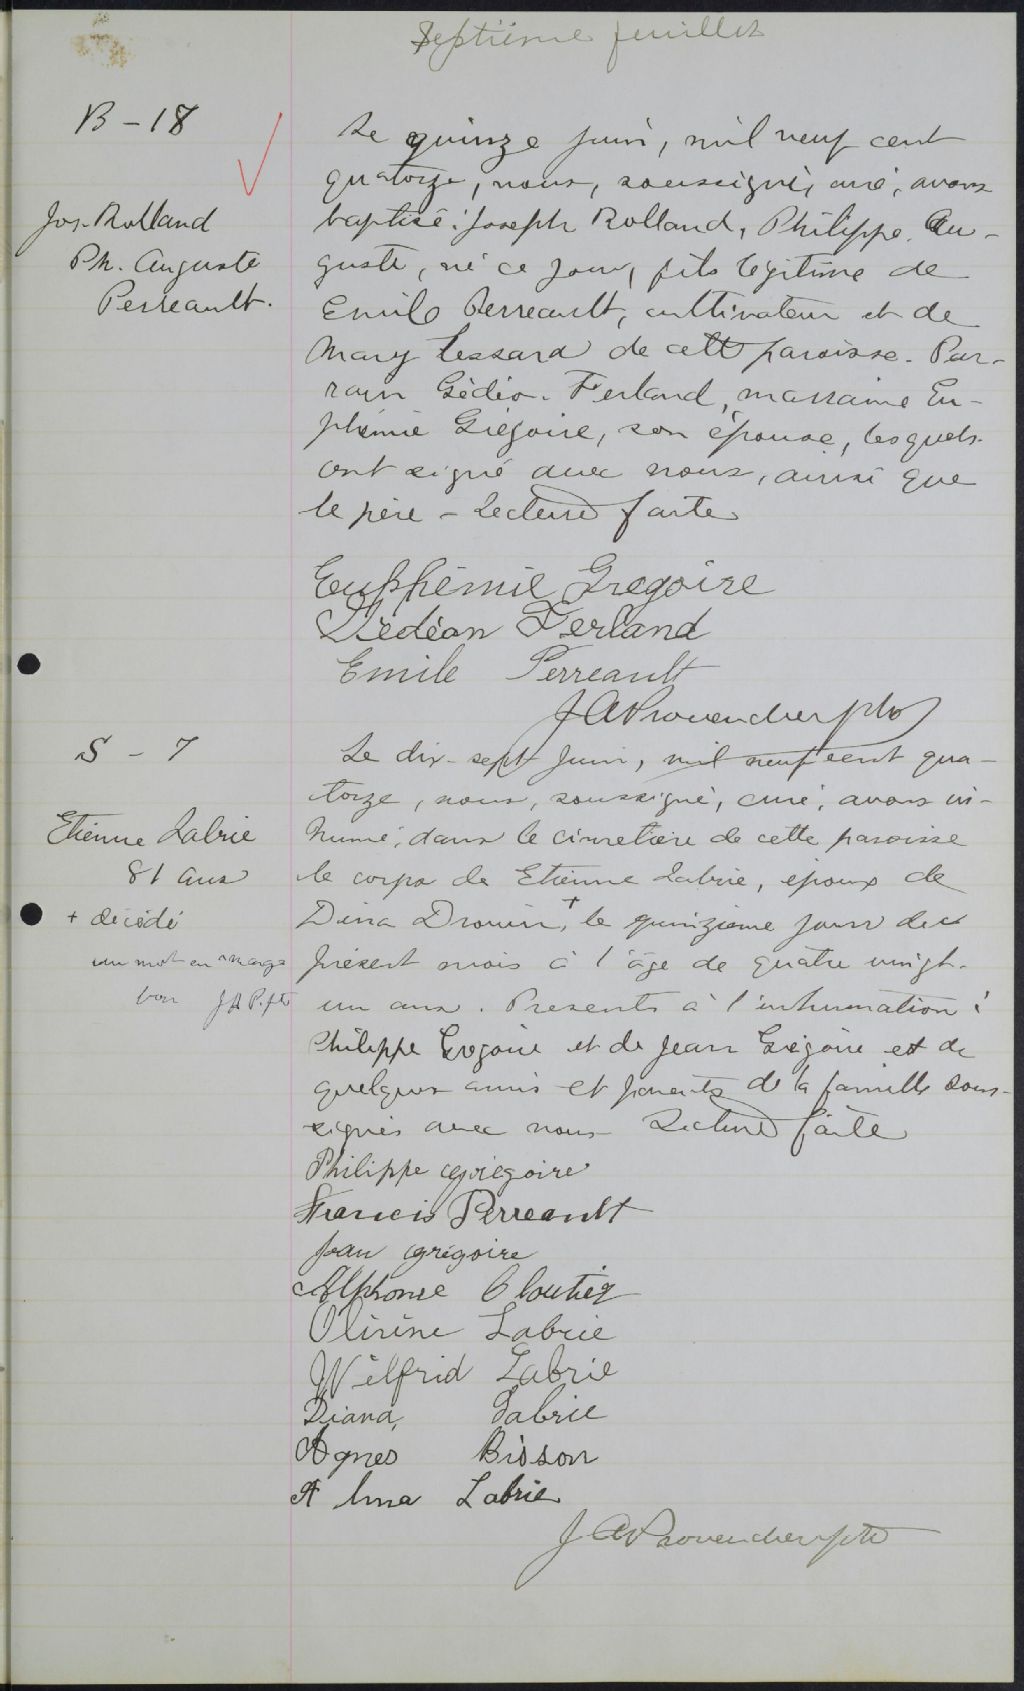 Septième feuillet
B - 18
Jos. Rolland
Ph. Auguste
Perreault.
Le quinze juin, mil neuf cent
quatorze, nous, soussigné, curé, avons
baptisé: Joseph Rolland, Philippe, Au-
guste, né ce jour, fils légitime de
Emile Perreault, cultivateur et de
Mary Lessard de cette paroisse. Par-
rain Gédéon Ferland, marraine Eu-
phémie Grégoire, son épouse, lesquels
ont signé avec nous, ainsi que
le père - Lecture faite
Euphémie Gregoire
Gédéon Ferland
Emile Perreault
J A Provencher ptre
S - 7
Etienne Labrie
81 ans
+ décédé
un mot en marge
bon J A P. ptre
Le dix-sept Juin, mil neuf cent qua-
torze, nous, soussigné, curé, avons in-
humé, dans le cimetière de cette paroisse
le corps de Etienne Labrie, époux de
Dina Drouin, + le quinzième jour du
présent mois à l'âge de quatre vingt-
un ans. Presents à l'inhumation:
Philippe Grégoire et de Jean Grégoire et de
quelques amis et parents de la famille sous-
signés avec nous Lecture faite
Philippe Grégoire
Francis Perreault
Jean Grégoire
Alphonse Cloutier
Olivine Labrie
Wilfrid Labrie
Diana Labrie
Agnes Bisson
Alma Labrie
J A Provencher ptre